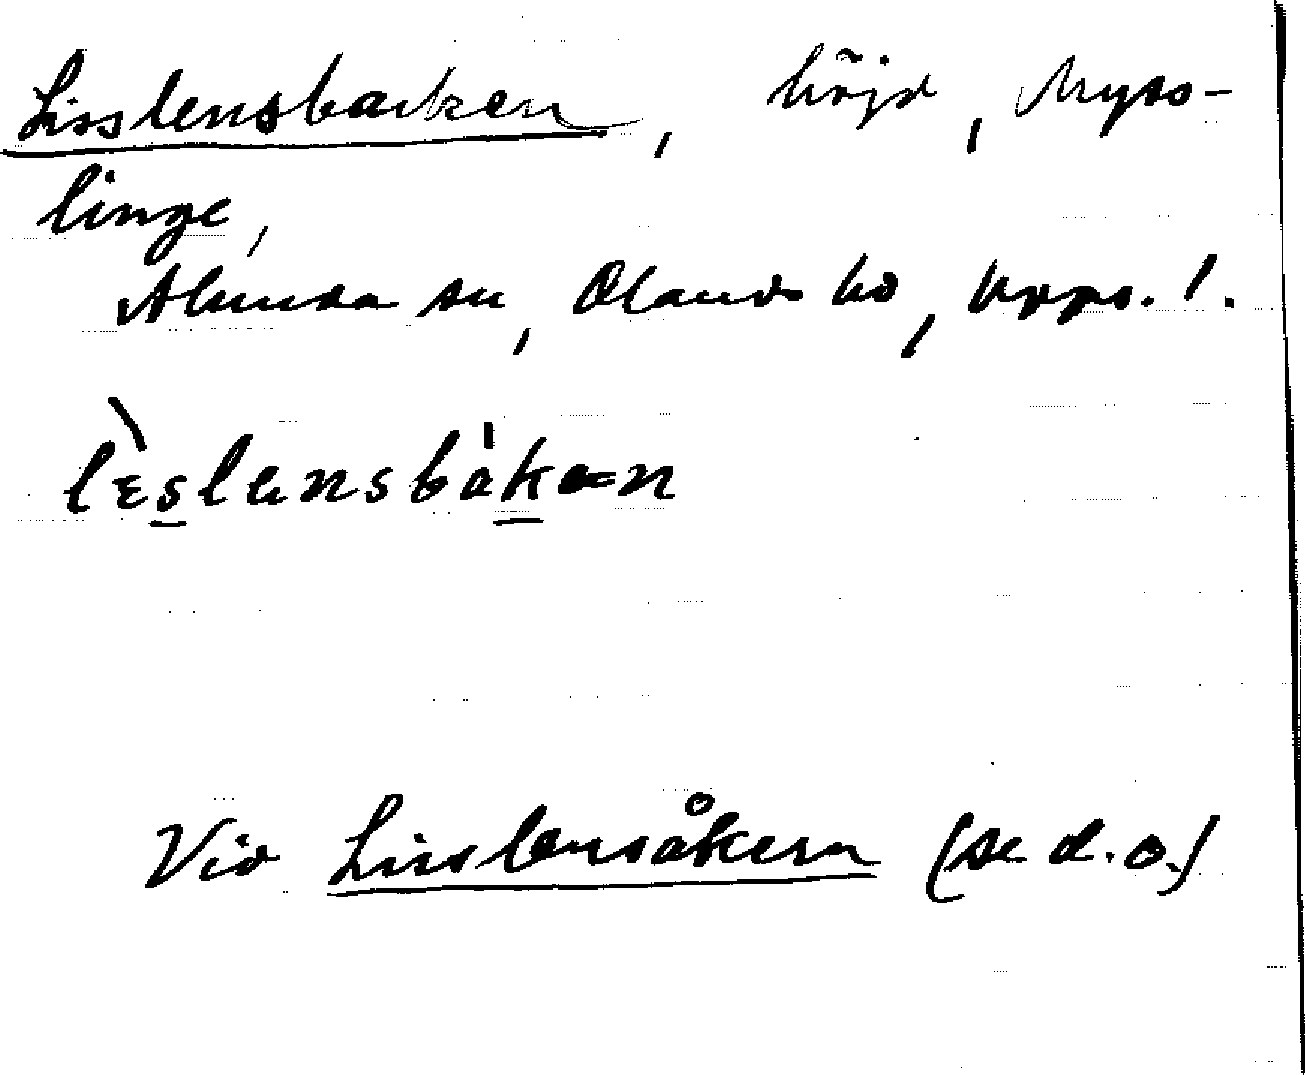 Lisslensbacken, höjd, Myss-
linge,
Alunda sn, Olands hd, Upps. l.
lɛslensbakən
Vid Lisslensåkern (se d.o.)